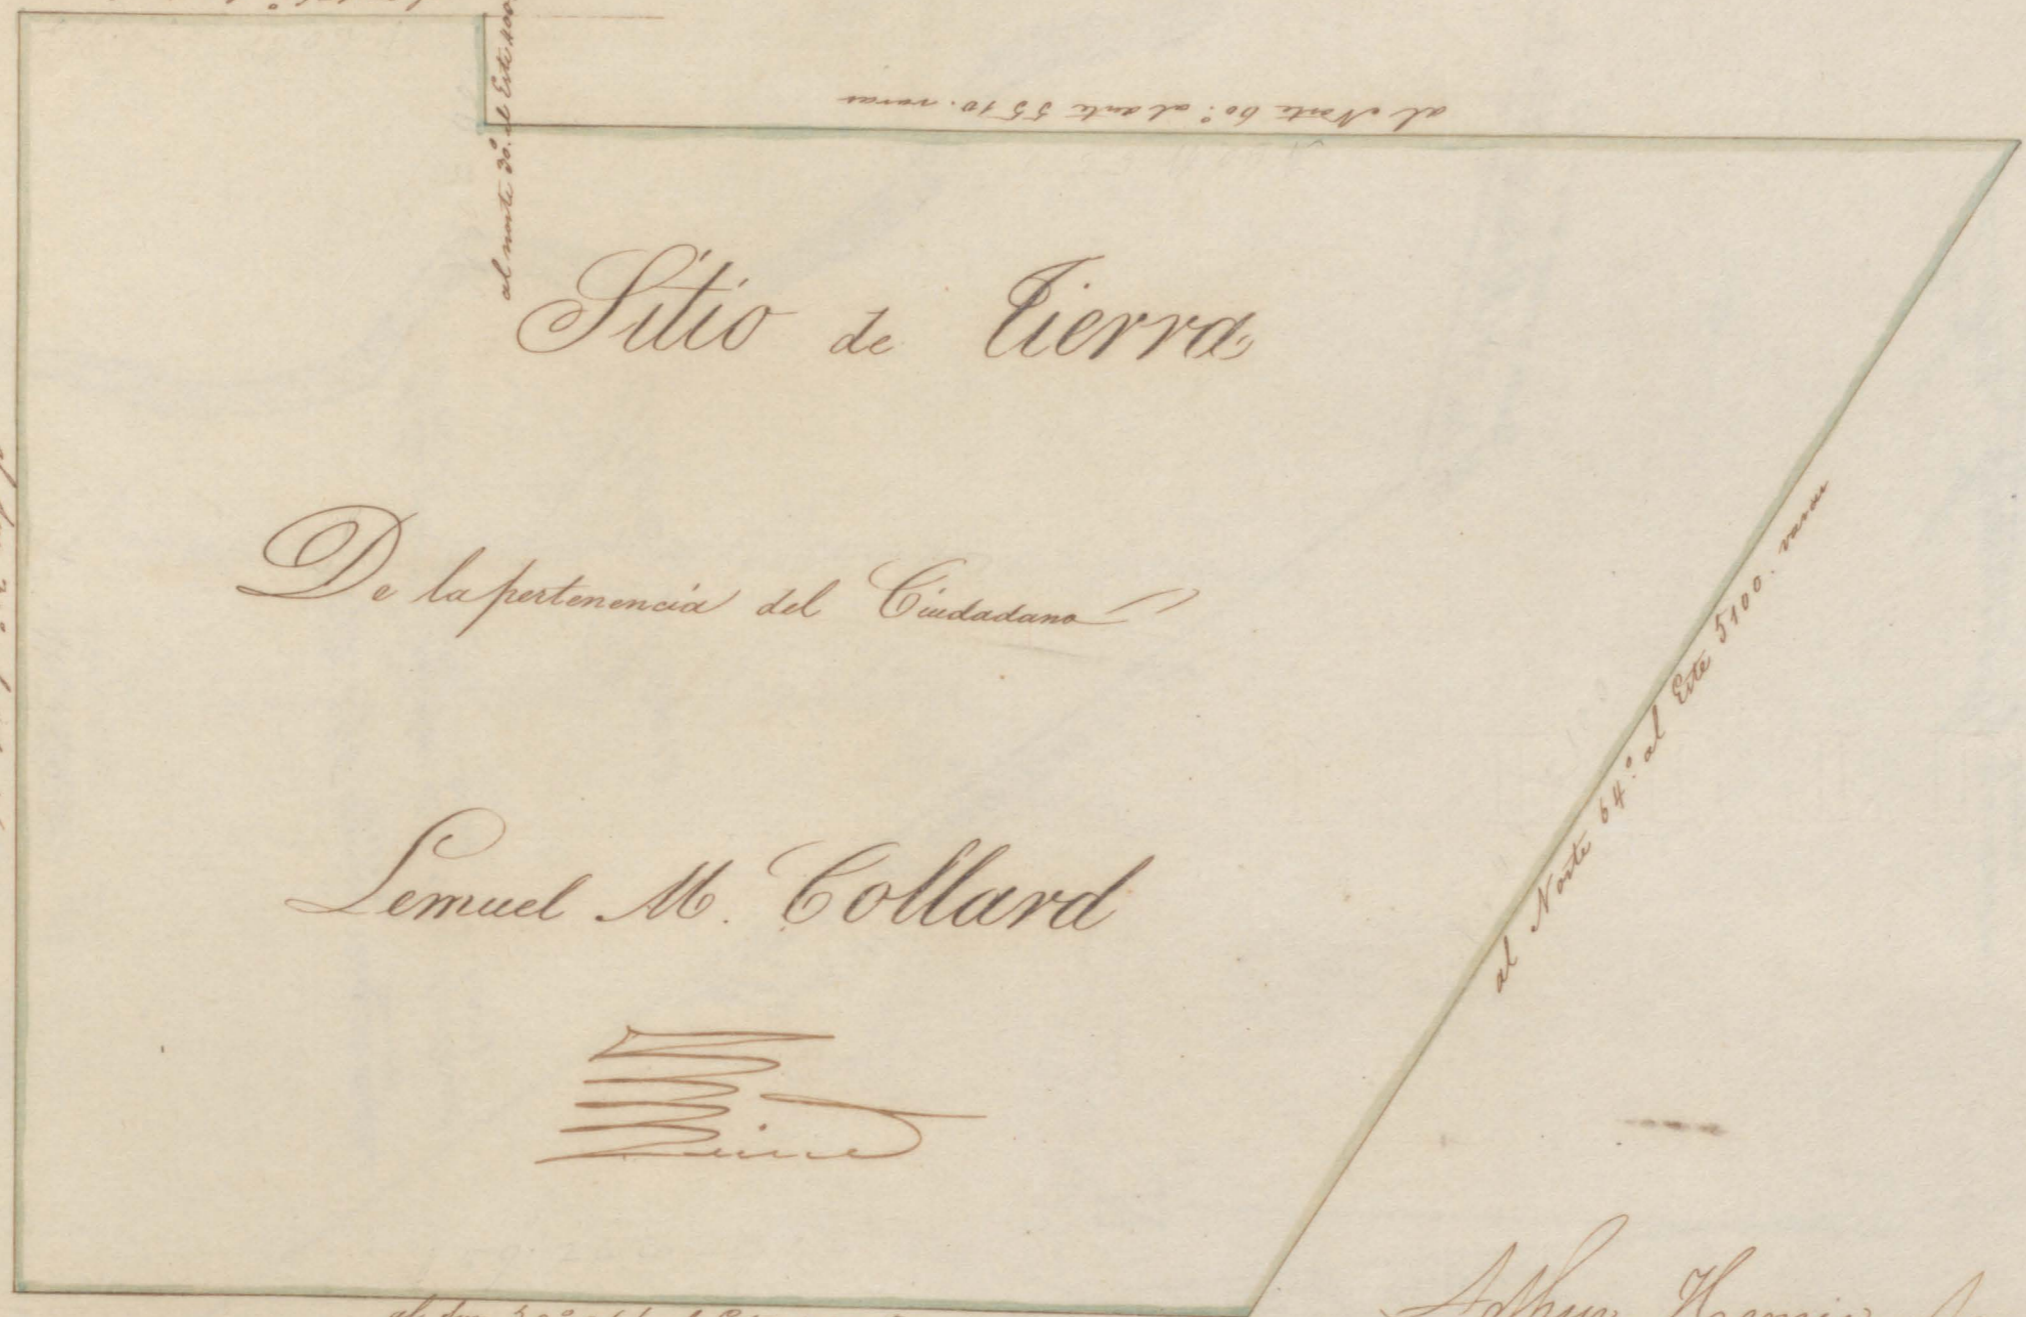 al norte 30º al Este 400
al Norte 60º al 5510 varas
Sitio de Tierra
De la pertenencia del Ciudadano
Lemuel M. Collard
al Norte 64º al Este 5100. varas
Arthur Henrie